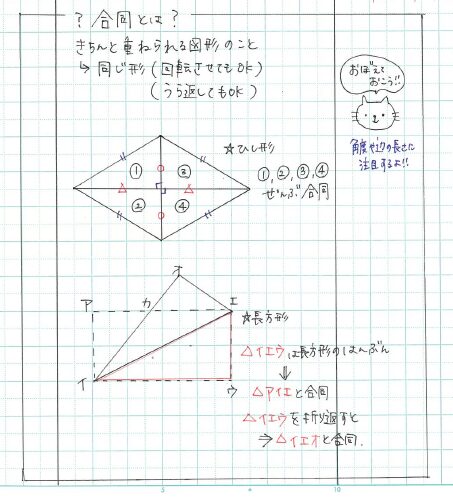 ? 合同とは?
きちんと重ねられる図形のこと
↳ 同じ形(回転させてもOK)
(うら返してもOK)
おぼえて
おこう!!
角度や辺の長さに
注目するよ!!
☆ひし形
① ③
② ④
①,②,③,④
ぜんぶ合同
オ
ア カ エ
☆長方形
イ ウ
△イエウは長方形のはんぶん
⇓
△アイエと合同
△イエウを折り返すと
⇒△イエオと合同.
5
10